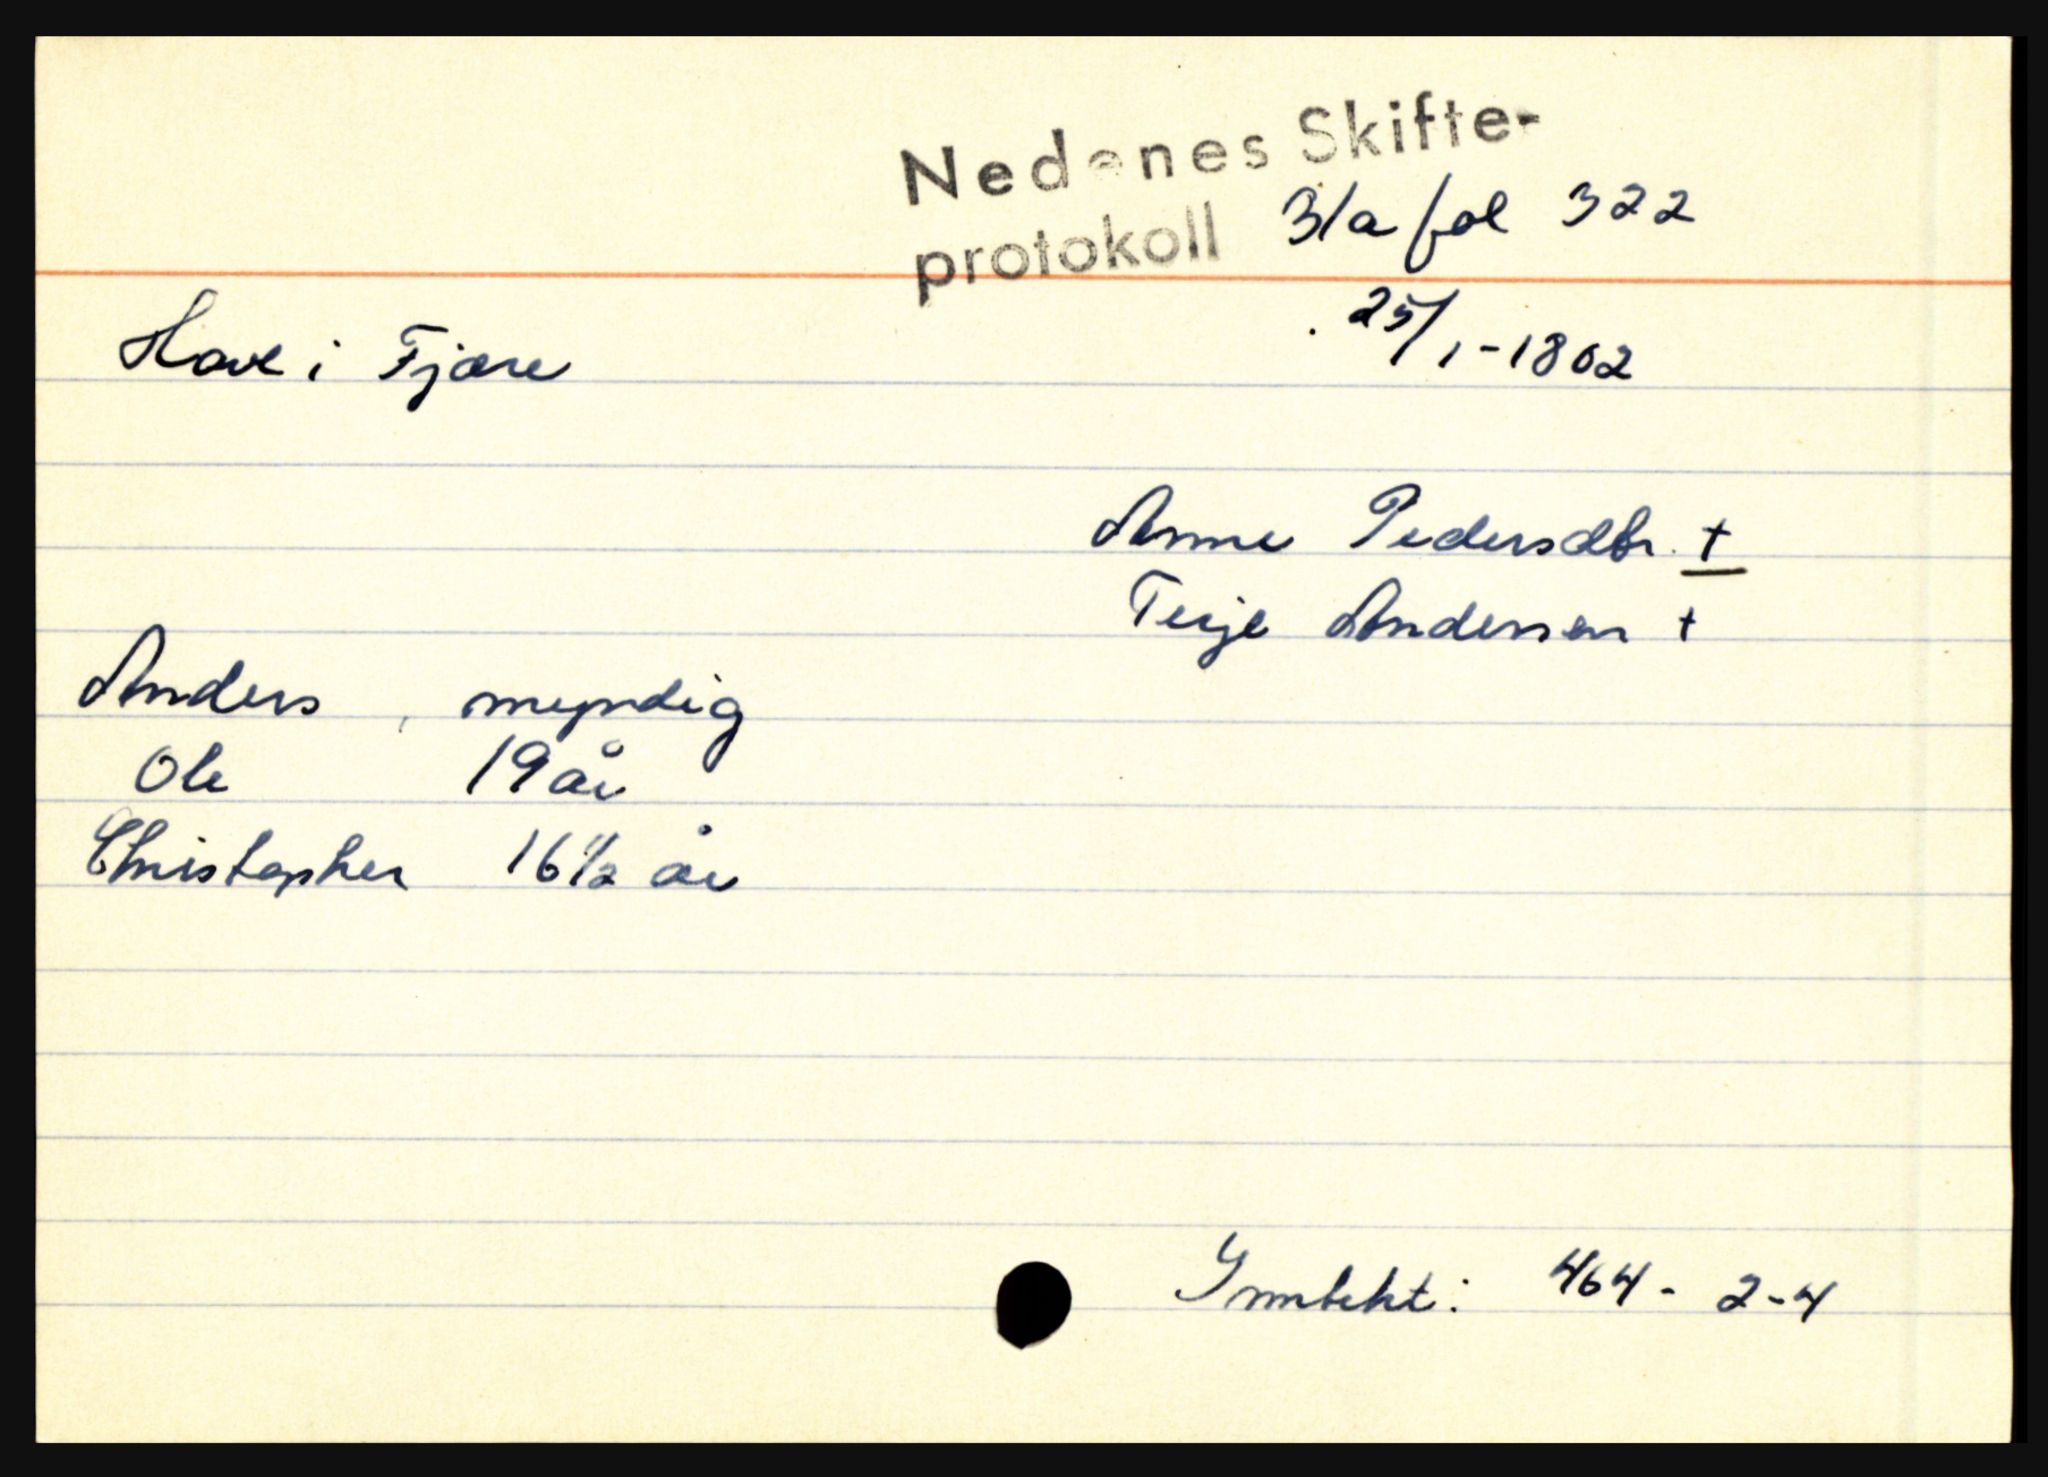 Nedenes Skifte-
protokoll 3/a fol 322
Have i Fjære 25/1-1802
Anne Pedersdtr. †
Terje Andersen †
Anders, myndig
Ole 19 år
Christopher 16 1/2 år
464 - 2-4